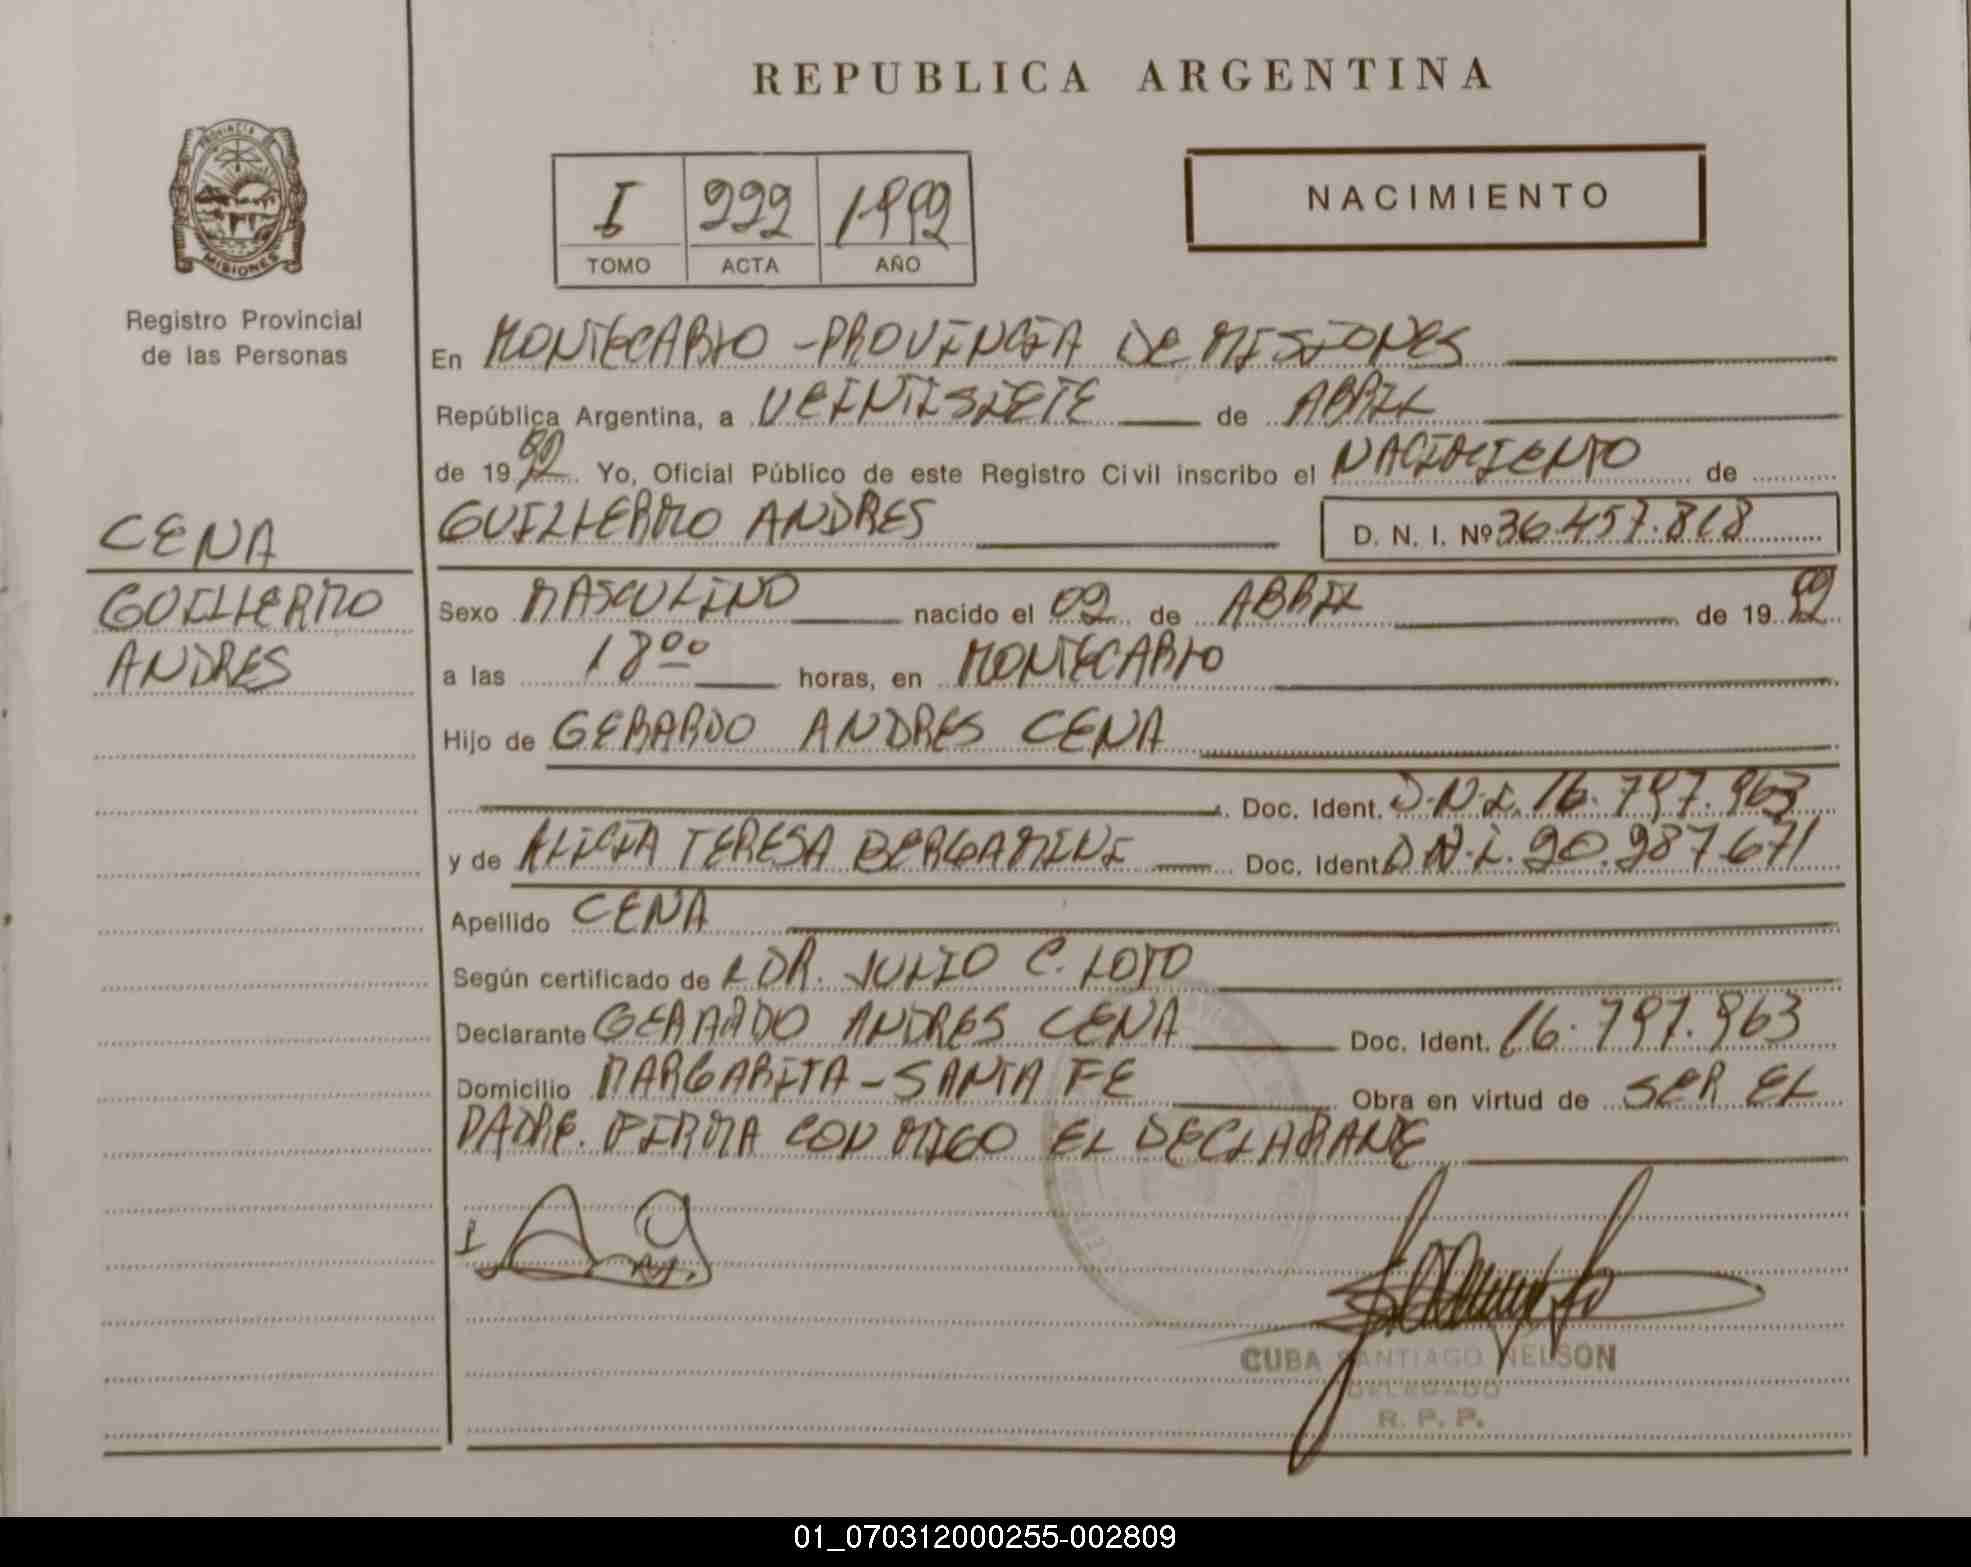 REPUBLICA ARGENTINA
PROVINCIA DE
MISIONES
Registro Provincial
de las Personas
I 222 1992
TOMO ACTA AÑO
NACIMIENTO
CENA
GUILLERMO
ANDRES
En MONTECARLO - PROVINCIA DE MISIONES
República Argentina, a VEINTISIETE de ABRIL
de 1992 Yo, Oficial Público de este Registro Civil inscribo el NACIMIENTO de
GUILLERMO ANDRES D. N. I. Nº 36.457.818
Sexo MASCULINO nacido el 02 de ABRIL de 1992
a las 18 00 horas, en MONTECARLO
Hijo de GERARDO ANDRES CENA
Doc. Ident. D.N.I. 16.797.963
y de ALICIA TERESA BERGAMINI Doc. Ident. D.N.I. 20.287.671
Apellido CENA
Según certificado de L DR. JULIO C. LOTO
Declarante GERARDO ANDRES CENA Doc. Ident. 16.797.963
Domicilio MARGARITA - SANTA FE Obra en virtud de SER EL
PADRE. FIRMA CON MIGO EL DECLARANTE
CUBA SANTIAGO NELSON
DELEGADO
R. P. P.
01_070312000255-002809